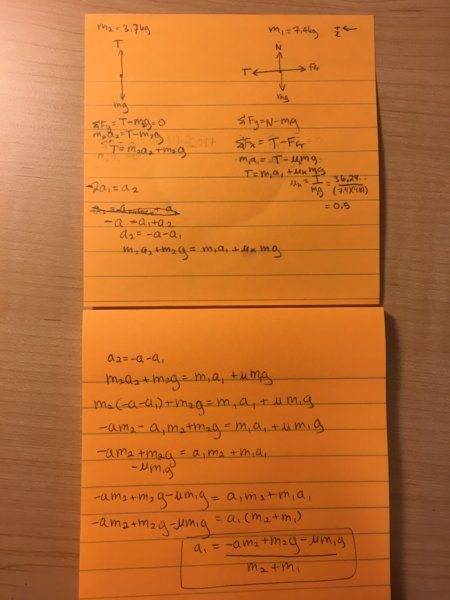 m₂ = 3.7kg
m₁ = 7.4kg
T
mg
N
T
Ffr
mg
ΣFy = T - m₂g = 0
m₂a₂ = T - m₂g
T = m₂a₂ + m₂g
ΣFy = N - mg
ΣFx = T - Ffr
m₁a₁ = T - μmg
T = m₁a₁ + μₖmg
μₖ = T/mg = 36.24.. / (7.4)(9.8)
= 0.5
-2a₁ = a₂
-a = a₁ + a₂
a₂ = -a - a₁
m₂a₂ + m₂g = m₁a₁ + μₖmg
a₂ = -a - a₁
m₂a₂ + m₂g = m₁a₁ + μm₁g
m₂(-a - a₁) + m₂g = m₁a₁ + μm₁g
-am₂ - a₁m₂ + m₂g = m₁a₁ + μm₁g
-am₂ + m₂g = a₁m₂ + m₁a₁
-μm₁g
-am₂ + m₂g - μm₁g = a₁m₂ + m₁a₁
-am₂ + m₂g - μm₁g = a₁(m₂ + m₁)
a₁ = -am₂ + m₂g - μm₁g
m₂ + m₁